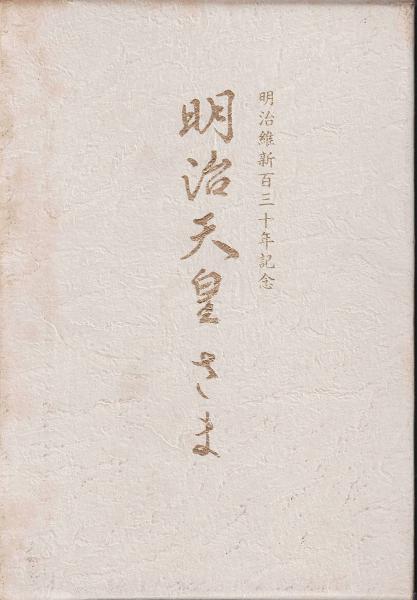 明治維新百三十年記念
明治天皇さま